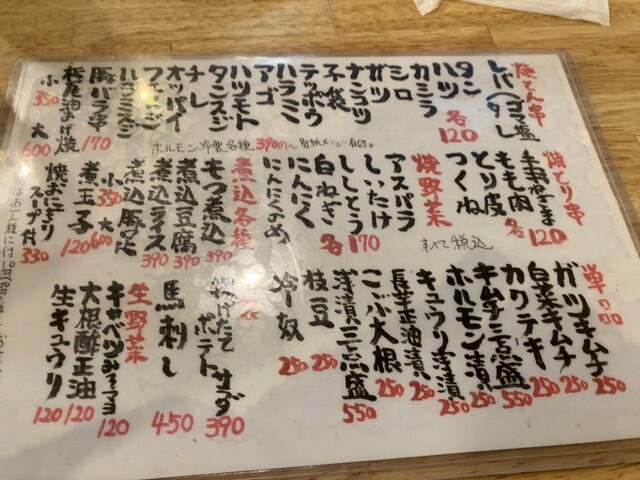 焼とん串
レバ(タレ ゴマ塩)
タン
ハツ
カシラ
シロ
ガツ
ナンコツ
子袋
テッポウ
ハラミ
アゴ
ハツモト
タンスジ
チレ
オッパイ
フェージ
ハラミスジ
各120
豚バラ串 170
栃尾油あげ焼
小350 大600
ホルモン冷製各種390円~
焼とり串
もも肉
とり皮
つくね
各120
すべて税込
焼野菜
アスパラ
しいたけ
ししとう
白ねぎ
にんにく
にんにくのめ
各170
煮込各種
もつ煮込 390
煮込豆腐 390
煮込ライス 390
煮込豚足
小350 大600
煮玉子 120
焼おにぎりスープ付 330
単品
ガツキムチ 250
白菜キムチ 250
カクテキ 250
キムチ三点盛 550
ホルモン漬 250
キュウリ浅漬 250
長芋正油漬 250
こんぶ大根 250
浅漬三点盛 550
枝豆 250
冷奴 250
揚げたてポテトサラダ 390
馬刺し 450
生野菜
キャベツみそマヨ 120
大根酢正油 120
生キュウリ 120